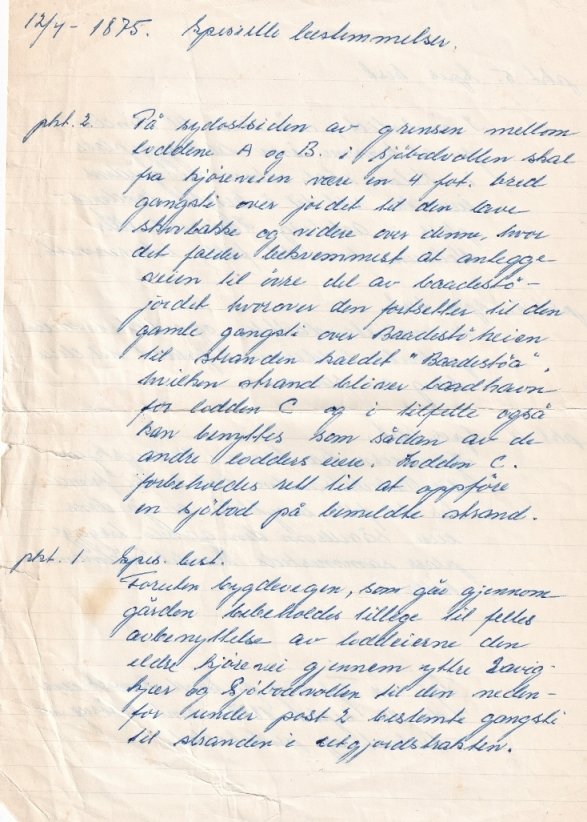 12/4 - 1875. Spesielle bestemmelser.
pkt. 2. På sydostsiden av grensen mellom
loddene A og B. i Sjöbodvollen skal
fra kjöreveien være en 4 fot. bred
gangsti over jordet til den lave
skovbakke og videre over denne, hvor
det falder bekvemmest at anlegge
veien til övre del av baadestö-
jordet hvorover den fortsetter til den
gamle gangsti over Baadestöheien
til stranden kaldet "Baadestöa",
hvilken strand bliver baadhavn
for lodden C og i tilfelle også
kan benyttes som sådan av de
andre lodders eiere. Lodden C.
forbeholdes rett til at oppföre
en sjöbod på bemeldte strand.
pkt. 1 Spes. best.
Foruten bygdevegen, som går gjennom
gården bebeholdes tillege til felles
avbenyttelse av loddeierne den
eldre kjörevei gjennem yttre
kjær og Sjöbodvollen til den neden-
for under post 2 bestemte gangsti
til stranden i utgjordstrakten.